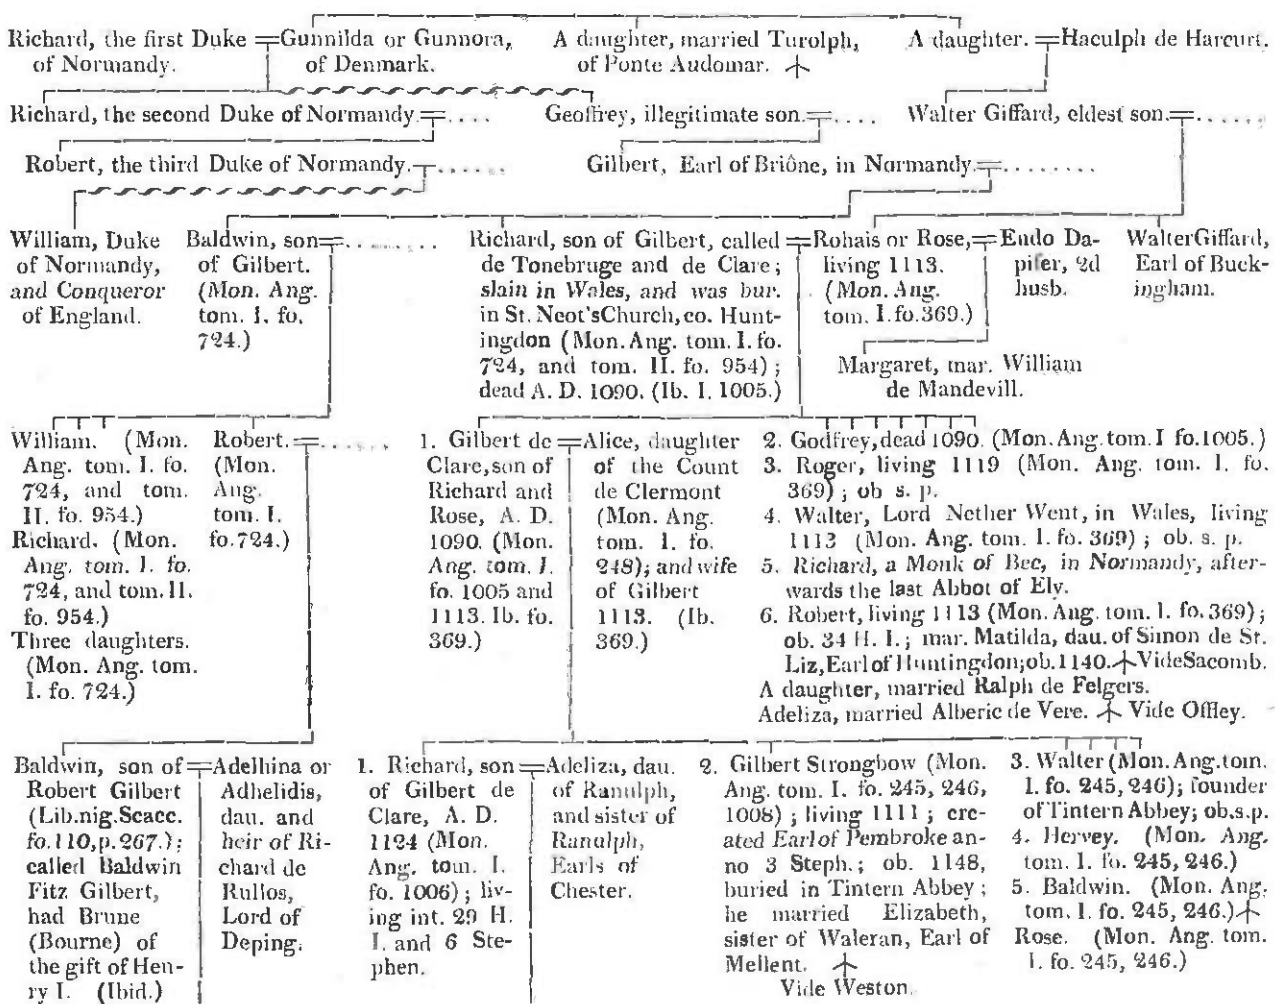 Richard, the first Duke of Normandy.
Gunnilda or Gunnora, of Denmark.
A daughter, married Turolph, of Ponte Audomar.
A daughter. Haculph de Harcurt.
Richard, the second Duke of Normandy.
Geoffrey, illegitimate son.
Walter Giffard, eldest son.
Robert, the third Duke of Normandy.
Gilbert, Earl of Briône, in Normandy.
William, Duke
of Normandy,
and Conqueror
of England.
Baldwin, son
of Gilbert.
(Mon. Ang.
tom. I. fo.
724.)
Richard, son of Gilbert, called
de Tonebruge and de Clare;
slain in Wales, and was bur.
in St. Neot's Church, co. Hunt-
ingdon (Mon. Ang. tom. I. fo.
724, and tom. II. fo. 954);
dead A. D. 1090. (Ib. I. 1005.)
Rohais or Rose,
living 1113.
(Mon. Ang.
tom. I. fo. 369.)
Eudo Da-
pifer, 2d
husb.
Walter Giffard,
Earl of Buck-
ingham.
Margaret, mar. William
de Mandevill.
William. (Mon.
Ang. tom. I. fo.
724, and tom.
II. fo. 954.)
Richard. (Mon.
Ang. tom. I. fo.
724, and tom. II.
fo. 954.)
Three daughters.
(Mon. Ang. tom.
I. fo. 724.)
Robert.
(Mon.
Ang.
tom. I.
fo. 724.)
1. Gilbert de
Clare, son of
Richard and
Rose, A. D.
1090. (Mon.
Ang. tom. I.
fo. 1005 and
1113. Ib. fo.
369.)
Alice, daughter
of the Count
de Clermont
(Mon. Ang.
tom. I. fo.
248); and wife
of Gilbert
1113. (Ib.
369.)
2. Godfrey, dead 1090. (Mon. Ang. tom. I fo. 1005.)
3. Roger, living 1119 (Mon. Ang. tom. I. fo.
369); ob s. p.
4. Walter, Lord Nether Went, in Wales, living
1113 (Mon. Ang. tom. I. fo. 369); ob. s. p.
5. Richard, a Monk of Bec, in Normandy, after-
wards the last Abbot of Ely.
6. Robert, living 1113 (Mon. Ang. tom. I. fo. 369);
ob. 34 H. I.; mar. Matilda, dau. of Simon de St.
Liz, Earl of Huntingdon; ob. 1140. Vide Sacomb.
A daughter, married Ralph de Felgers.
Adeliza, married Alberic de Vere. Vide Offley.
Baldwin, son of
Robert Gilbert
(Lib. nig. Scacc.
fo. 110, p. 267.);
called Baldwin
Fitz Gilbert,
had Brune
(Bourne) of
the gift of Hen-
ry I. (Ibid.)
Adelhina or
Adhelidis,
dau. and
heir of Ri-
chard de
Rullos,
Lord of
Deping.
1. Richard, son
of Gilbert de
Clare, A. D.
1124 (Mon.
Ang. tom. I.
fo. 1006); liv-
ing int. 29 H.
I. and 6 Ste-
phen.
Adeliza, dau.
of Ranulph,
and sister of
Ranulph,
Earls of
Chester.
2. Gilbert Strongbow (Mon.
Ang. tom. I. fo. 245, 246,
1008); living 1111; cre-
ated Earl of Pembroke an-
no 3 Steph.; ob. 1148,
buried in Tintern Abbey;
he married Elizabeth,
sister of Waleran, Earl of
Mellent.
Vide Weston.
3. Walter (Mon. Ang. tom.
I. fo. 245, 246); founder
of Tintern Abbey; ob. s.p.
4. Hervey. (Mon. Ang.
tom. I. fo. 245, 246.)
5. Baldwin. (Mon. Ang.
tom. I. fo. 245, 246.)
Rose. (Mon. Ang. tom.
I. fo. 245, 246.)